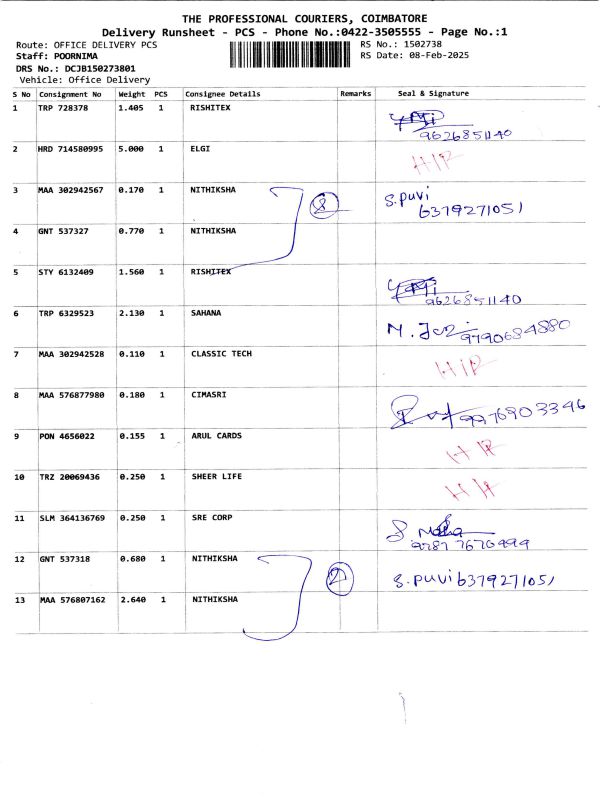 THE PROFESSIONAL COURIERS, COIMBATORE
Delivery Runsheet - PCS - Phone No.:0422-3505555 - Page No.:1
Route: OFFICE DELIVERY PCS RS No.: 1502738
Staff: POORNIMA RS Date: 08-Feb-2025
DRS No.: DCJB150273801
Vehicle: Office Delivery
S No Consignment No Weight PCS Consignee Details Remarks Seal & Signature
1 TRP 728378 1.405 1 RISHITEX
9626851140
2 HRD 714580995 5.000 1 ELGI HIR
3 MAA 302942567 0.170 1 NITHIKSHA S.PUVI
6379271051
4 GNT 537327 0.770 1 NITHIKSHA
5 STY 6132409 1.560 1 RISHITEX
9626851140
6 TRP 6329523 2.130 1 SAHANA 9790684880
7 MAA 302942528 0.110 1 CLASSIC TECH HIR
8 MAA 576877980 0.180 1 CIMASRI 9976903346
9 PON 4656022 0.155 1 ARUL CARDS HIR
10 TRZ 20069436 0.250 1 SHEER LIFE
11 SLM 364136769 0.250 1 SRE CORP
12 GNT 537318 0.680 1 NITHIKSHA 2 S.PUVI 6379271051
13 MAA 576807162 2.640 1 NITHIKSHA